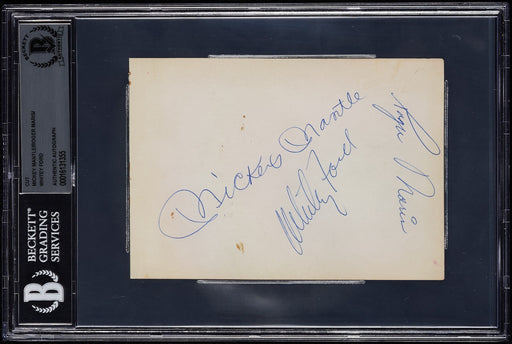 BECKETT
AUTHENTICATED
CUT
MICKEY MANTLE/ROGER MARIS/
WHITEY FORD
AUTHENTIC AUTOGRAPH
00016131355
BECKETT
GRADING
SERVICES
B
Mickey Mantle
Whitey Ford
Roger Maris